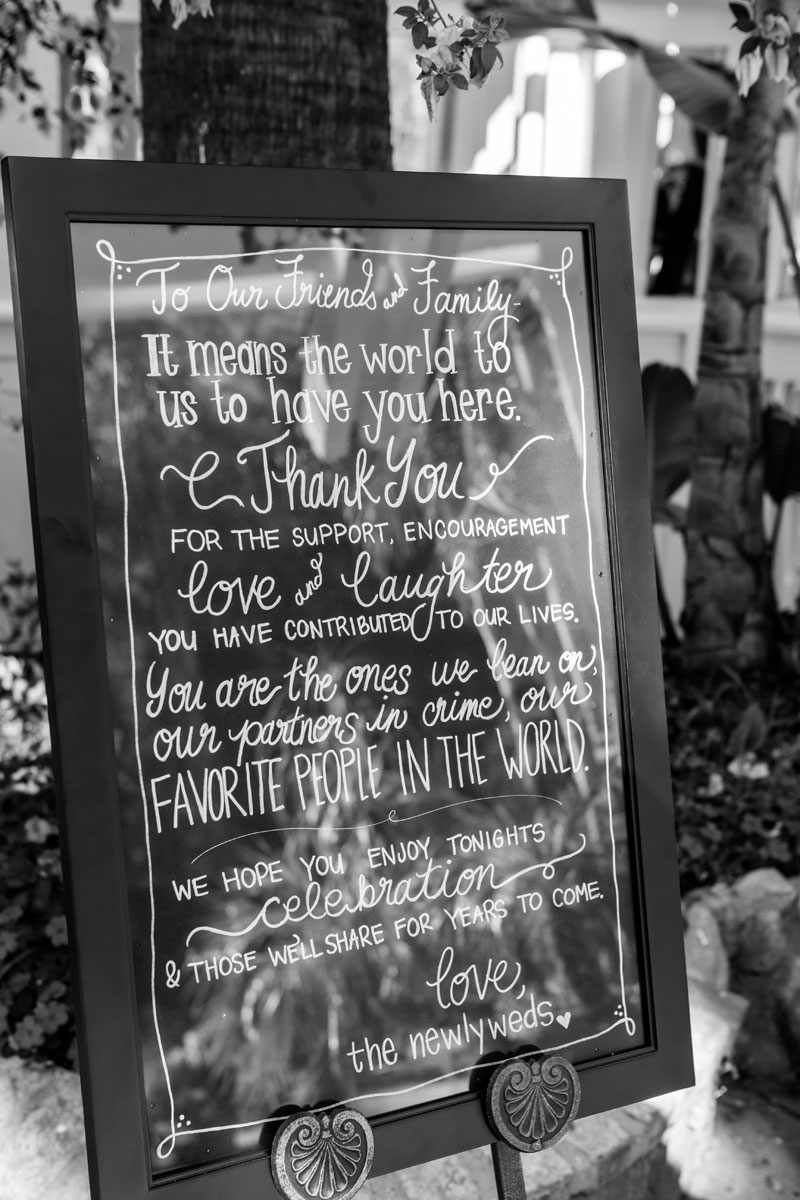 To Our Friends and Family-
It means the world to
us to have you here.
Thank You
FOR THE SUPPORT, ENCOURAGEMENT
love and laughter
YOU HAVE CONTRIBUTED TO OUR LIVES.
You are the ones we lean on,
our partners in crime, our
FAVORITE PEOPLE IN THE WORLD.
WE HOPE YOU ENJOY TONIGHTS
celebration
& THOSE WE'LL SHARE FOR YEARS TO COME.
love,
the newlyweds.♥